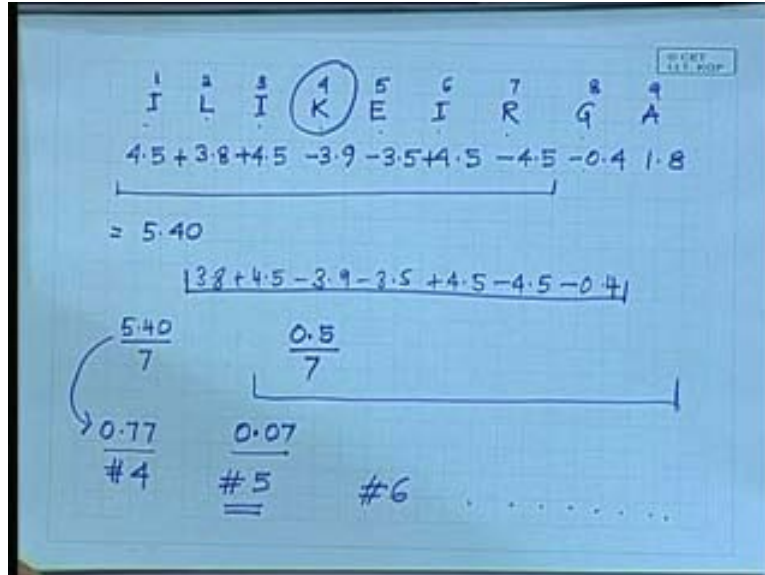 © CET
I.I.T. KGP
1 2 3 4 5 6 7 8 9
I L I K E I R G A
4.5 + 3.8 + 4.5 - 3.9 - 3.5 + 4.5 - 4.5 - 0.4 1.8
= 5.40
3.8 + 4.5 - 3.9 - 3.5 + 4.5 - 4.5 - 0.4
5.40 0.5
7 7
0.77 0.07
#4 #5 #6 . . . . . . . .